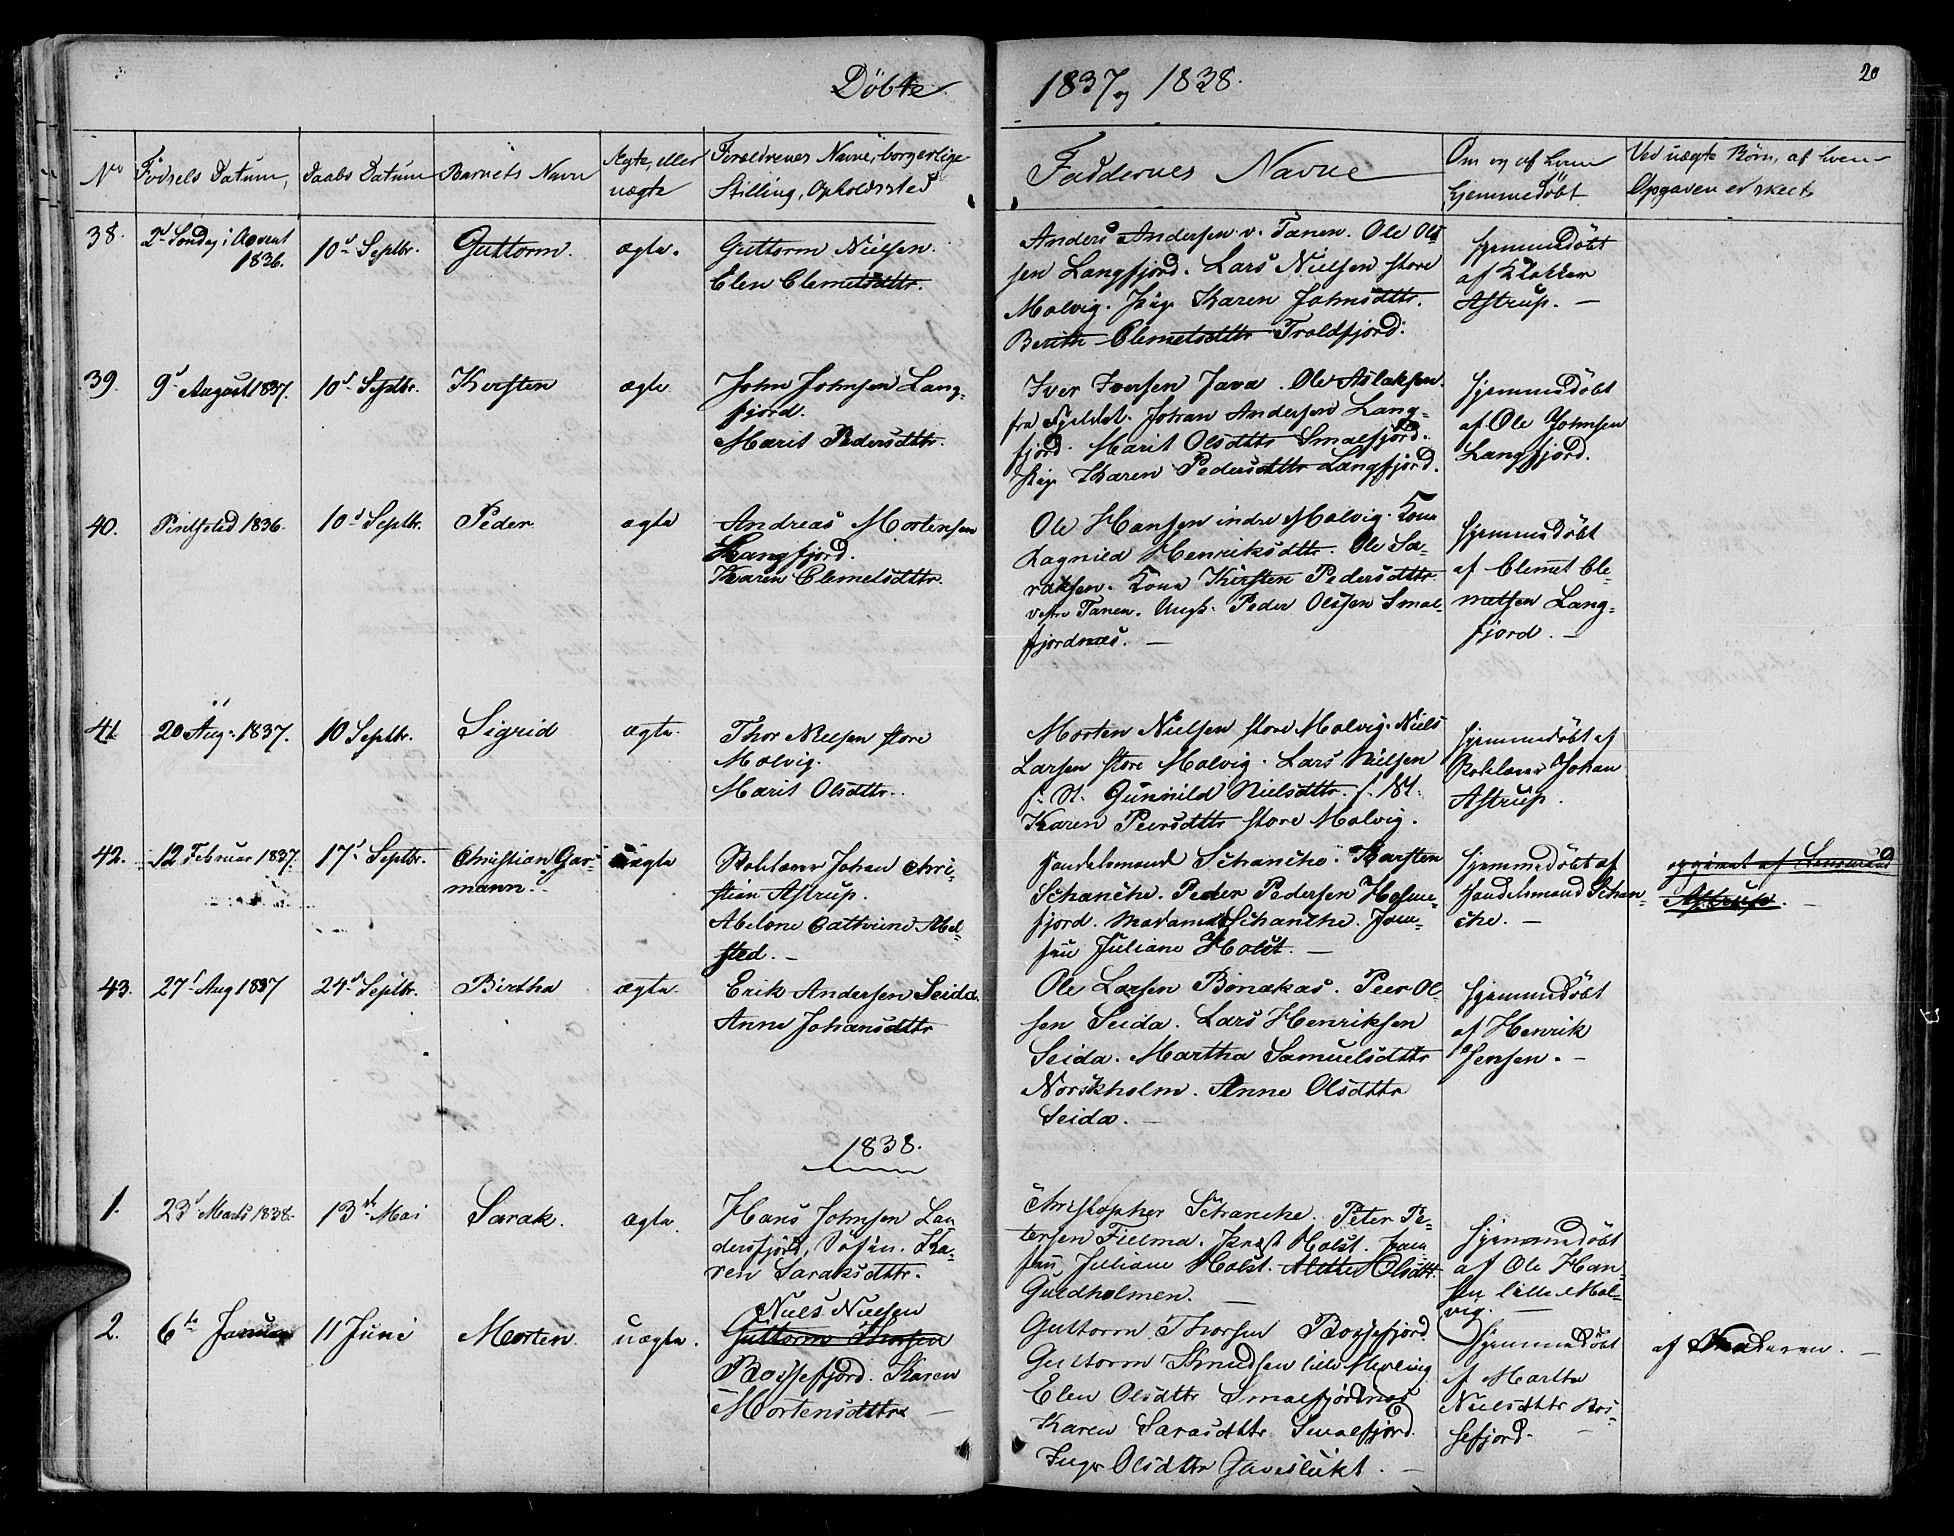 Döbte
1837 og 1838.
20
No
Födsels Datum,
Daabs Datum
Barnets Navn
Ægte, eller
uægte
Forældrenes Navne, borgerlige
Stilling, Opholdssted
Faddernes Navne
Om og af hvem
hjemmedöbt
Ved uægte Börn, af hvem
Opgaven er skeet
38.
2d Søndag i Advent
1836.
10d Septbr.
Guttorm.
ægte.
Guttorm Nielsen.
Elen Clemetsdttr.
Anders Andersen v. Tanen. Ole Ol-
sen Langfjord. Lars Nielsen store
Molvig. Pige Karen Johnsdttr.
Berith Clemetsdttr Troldfjord.
hjemmedöbt
af Klokker
Astrup. —
39.
9d August 1837.
10d Septbr.
Kirsten
ægte
John Johnsen Lang-
fjord.
Marit Pedersdttr.
Iver Iversen Java. Ole Aslaksen
fra Fjeldet. Johan Andersen Lang-
fjord. Marit Olsdttr Smalfjord.
Pige Karen Pedersdttr Langfjord.
hjemmedöbt
af Ole Johnsen
Langfjord.
40.
Pintstid 1836.
10d Septbr.
Peder
ægte
Andreas Mortensen
Langfjord.
Karen Clemetsdttr.
Ole Hansen indre Molvig. Kone
Ragnild Henriksdttr. Ole Sa-
raksen. Kone Kirsten Pedersdttr
vestre Tanen. Ungk. Peder Olsen Smal-
fjordnæs. —
hjemmedöbt
af Clemet Cle-
metsen Lang-
fjord. —
41.
20 Aug. 1837.
10 Septbr.
Sigrid
ægte.
Thor Nielsen store
Molvig.
Marit Olsdttr.
Morten Nielsen store Molvig. Niels
Larsen store Molvig. Lars Nielsen
s. St. Gunnild Nielsdttr. s. St.
Karen Peersdttr store Molvig.
hjemmedöbt af
Skolelærer Johan
Astrup.
42.
12 Februar 1837.
17d Septbr.
Christian Gar-
mann.
uægte
Skolelærer Johan Chri-
stian Astrup.
Abelone Cathrine Abel-
sted. —
Handelsmand Schanche. Karsten
Schanche. Peder Pedersen Hofme-
fjord. Madame Schanche. Jom-
fru Juliane Holst. —
hjemmedöbt af
Handelsmand Schan-
che. —
opgivet af Lensmand
Astrup. —
43.
27d Aug 1837
24d Septbr.
Birtha
ægte.
Erik Andersen Seida.
Anne Johansdttr
Ole Larsen Bonakas. Peer Ol-
sen Seida. Lars Henriksen
Seida. Martha Samuelsdttr
Norskholm. Anne Olsdttr
Seida. —
hjemmedöbt
af Henrik
Jensen. —
1838.
1.
23d Marts 1838.
13de Mai
Sarak.
ægte.
Hans Johnsen Lan-
dersfjord, Søfin. Ka-
ren Saraksdttr.
Christopher Schanche. Peter Pe-
tersen Fielma. Knut Holst. Jom-
fru Juliane Holst. Olsdttr
Guldholmen. —
hjemmedöbt
af Ole Han-
sen lille Mol-
vig. —
2.
6te Januar
11 Juni
Morten.
uægte.
Niels Nielsen
Guttorm Thorsen
Bossefjord. Karen
Mortensdttr —
Guttorm Thorsen Bossefjord.
Guttorm Knudsen lille Molvig
Elen Olsdttr Smalfjordnæs
Karen Sarasdttr Smalfjord.
Inger Olsdttr Gaveslukt. —
hjemmedöbt
af Martha
Nielsdttr Bos-
sefjord. —
af Moderen. —